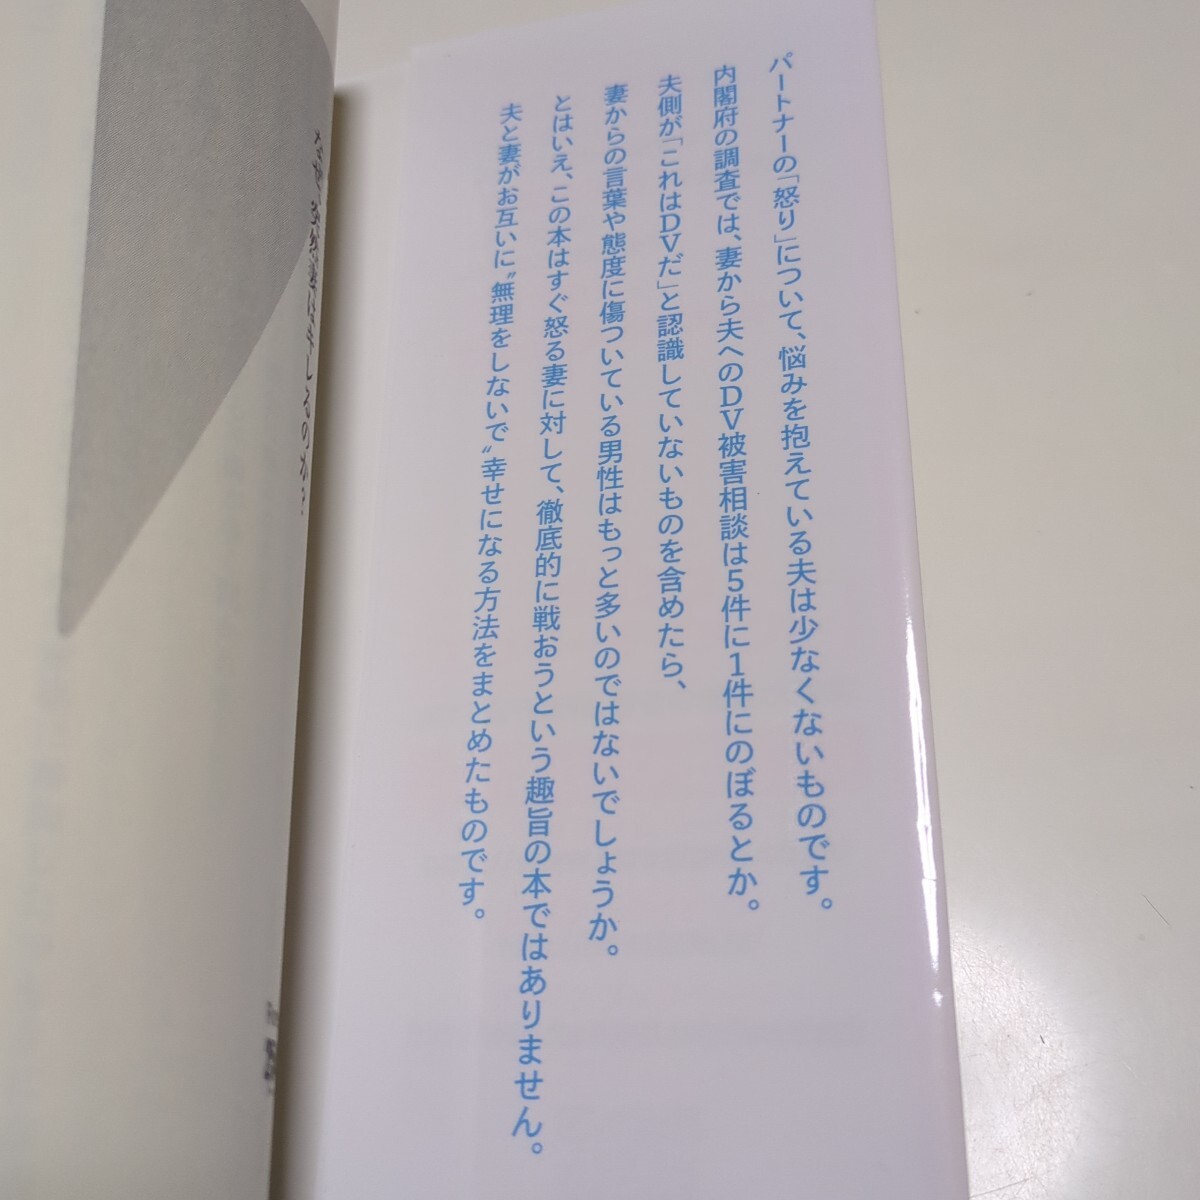 パートナーの「怒り」について、悩みを抱えている夫は少なくないものです。
内閣府の調査では、妻から夫へのDV被害相談は5件に1件にのぼるとか。
夫側が「これはDVだ」と認識していないものを含めたら、
妻からの言葉や態度に傷ついている男性はもっと多いのではないでしょうか。
とはいえ、この本はすぐ怒る妻に対して、徹底的に戦おうという趣旨の本ではありません。
夫と妻がお互いに〝無理をしないで〟幸せになる方法をまとめたものです。
なぜ、突然妻はキレるのか？